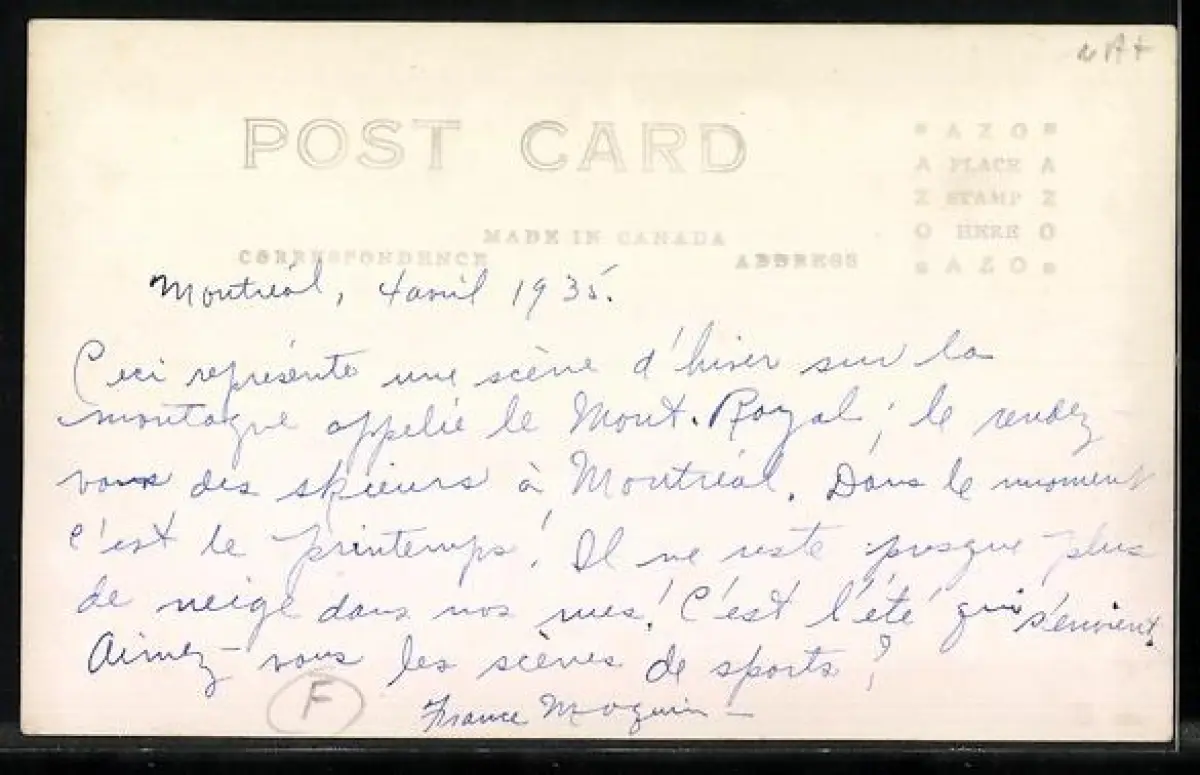 POST CARD
* A Z O *
A PLACE A
Z STAMP Z
O HERE O
* A Z O *
MADE IN CANADA
CORRESPONDENCE
ADDRESS
Montréal, 4 avril 1935.
Ceci représente une scène d'hiver sur la
montagne appelée le Mont-Royal; le rendez-
vous des skieurs à Montréal. Dans le moment
c'est le printemps! Il ne reste presque plus
de neige dans nos rues! C'est l'été qui s'envient.
Aimez-vous les scènes de sports?
F
France Moquin -